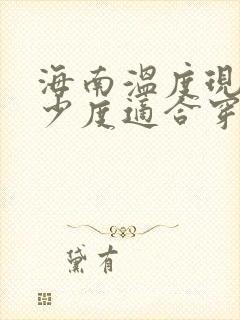 海南温度现
少度适合穿
黛有